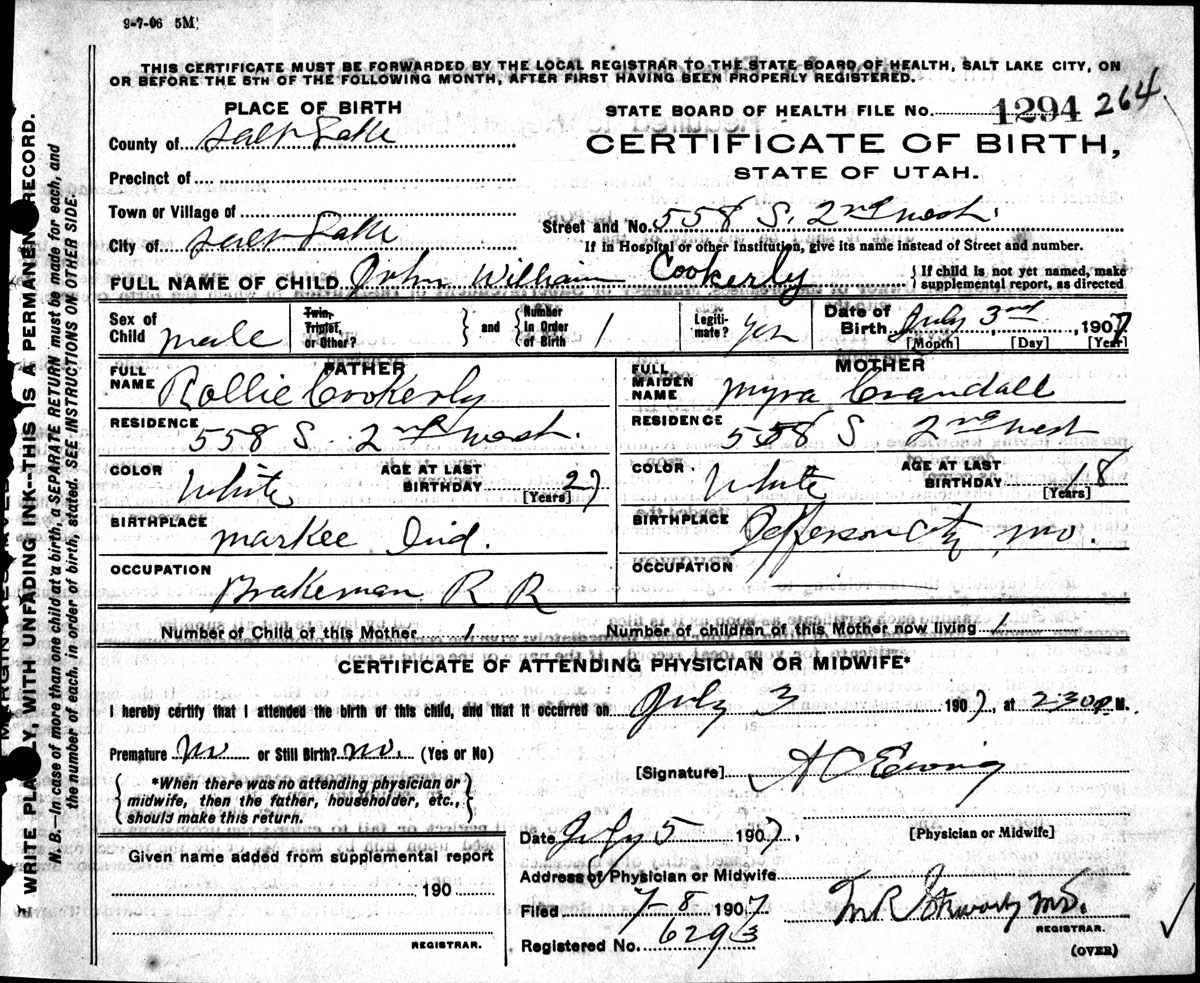 9-7-06 5M
THIS CERTIFICATE MUST BE FORWARDED BY THE LOCAL REGISTRAR TO THE STATE BOARD OF HEALTH, SALT LAKE CITY, ON
OR BEFORE THE 5TH OF THE FOLLOWING MONTH, AFTER FIRST HAVING BEEN PROPERLY REGISTERED.
PLACE OF BIRTH
STATE BOARD OF HEALTH FILE No. 1294 264
County of Salt Lake
CERTIFICATE OF BIRTH,
STATE OF UTAH.
Precinct of
Town or Village of
Street and No. 558 S. 2nd West
City of Salt Lake
If in Hospital or other Institution, give its name instead of Street and number.
FULL NAME OF CHILD John William Cookerly
{ If child is not yet named, make
supplemental report, as directed
Sex of Child male
Twin, Triplet, or Other? } and { Number in Order of Birth 1
Legitimate? yes
Date of Birth July 3rd, 1907
[Month] [Day] [Year]
FATHER
FULL NAME Rollie Cookerly
RESIDENCE 558 S. 2nd West.
COLOR White
AGE AT LAST BIRTHDAY 27
[Years]
BIRTHPLACE Markee Ind.
OCCUPATION Brakeman R R
MOTHER
FULL MAIDEN NAME Myra Crandall
RESIDENCE 558 S 2nd West
COLOR White
AGE AT LAST BIRTHDAY 18
[Years]
BIRTHPLACE Jefferson City, Mo.
OCCUPATION
Number of Child of this Mother 1
Number of children of this Mother now living 1
CERTIFICATE OF ATTENDING PHYSICIAN OR MIDWIFE*
I hereby certify that I attended the birth of this child, and that it occurred on July 3 1907, at 230 P. M.
Premature No or Still Birth? No. (Yes or No)
{ *When there was no attending physician or
midwife, then the father, householder, etc.,
should make this return. }
[Signature] A C Ewing
[Physician or Midwife]
Date July 5 1907,
Address of Physician or Midwife
Given name added from supplemental report
190
REGISTRAR.
Filed 7-8 1907
Registered No. 6293
M.D.
REGISTRAR.
(OVER)
WRITE PLAINLY, WITH UNFADING INK--THIS IS A PERMANENT RECORD.
N. B.--In case of more than one child at a birth, a SEPARATE RETURN must be made for each, and
the number of each, in order of birth, stated. SEE INSTRUCTIONS ON OTHER SIDE.